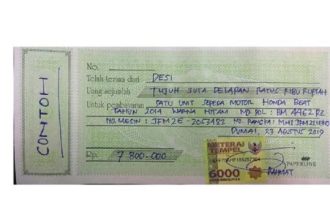 CONTOH
No.
Telah terima dari DESI
Uang sejumlah TUJUH JUTA DELAPAN RATUS RIBU RUPIAH
Untuk pembayaran SATU UNIT SEPEDA MOTOR HONDA BEAT
TAHUN 2014 WARNA HITAM NO POL : BM
NO. MESIN : JFM2E - NO. RANGKA :
DUMAI, 23 AGUSTUS 2019
METERAI
TEMPEL
6000
PAPERLINE
Rp. 7 800.000
RAHMAT